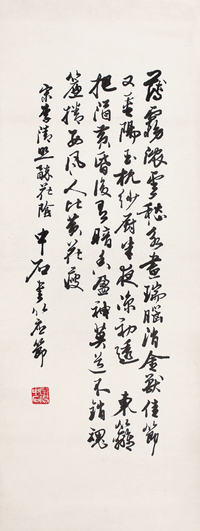 薄霧濃雲愁永晝瑞腦消金獸佳節
又重陽玉枕紗厨半夜涼初透東籬
把酒黃昏後有暗香盈袖莫道不銷魂
簾捲西風人比黃花瘦
宋李清照醉花陰
中石